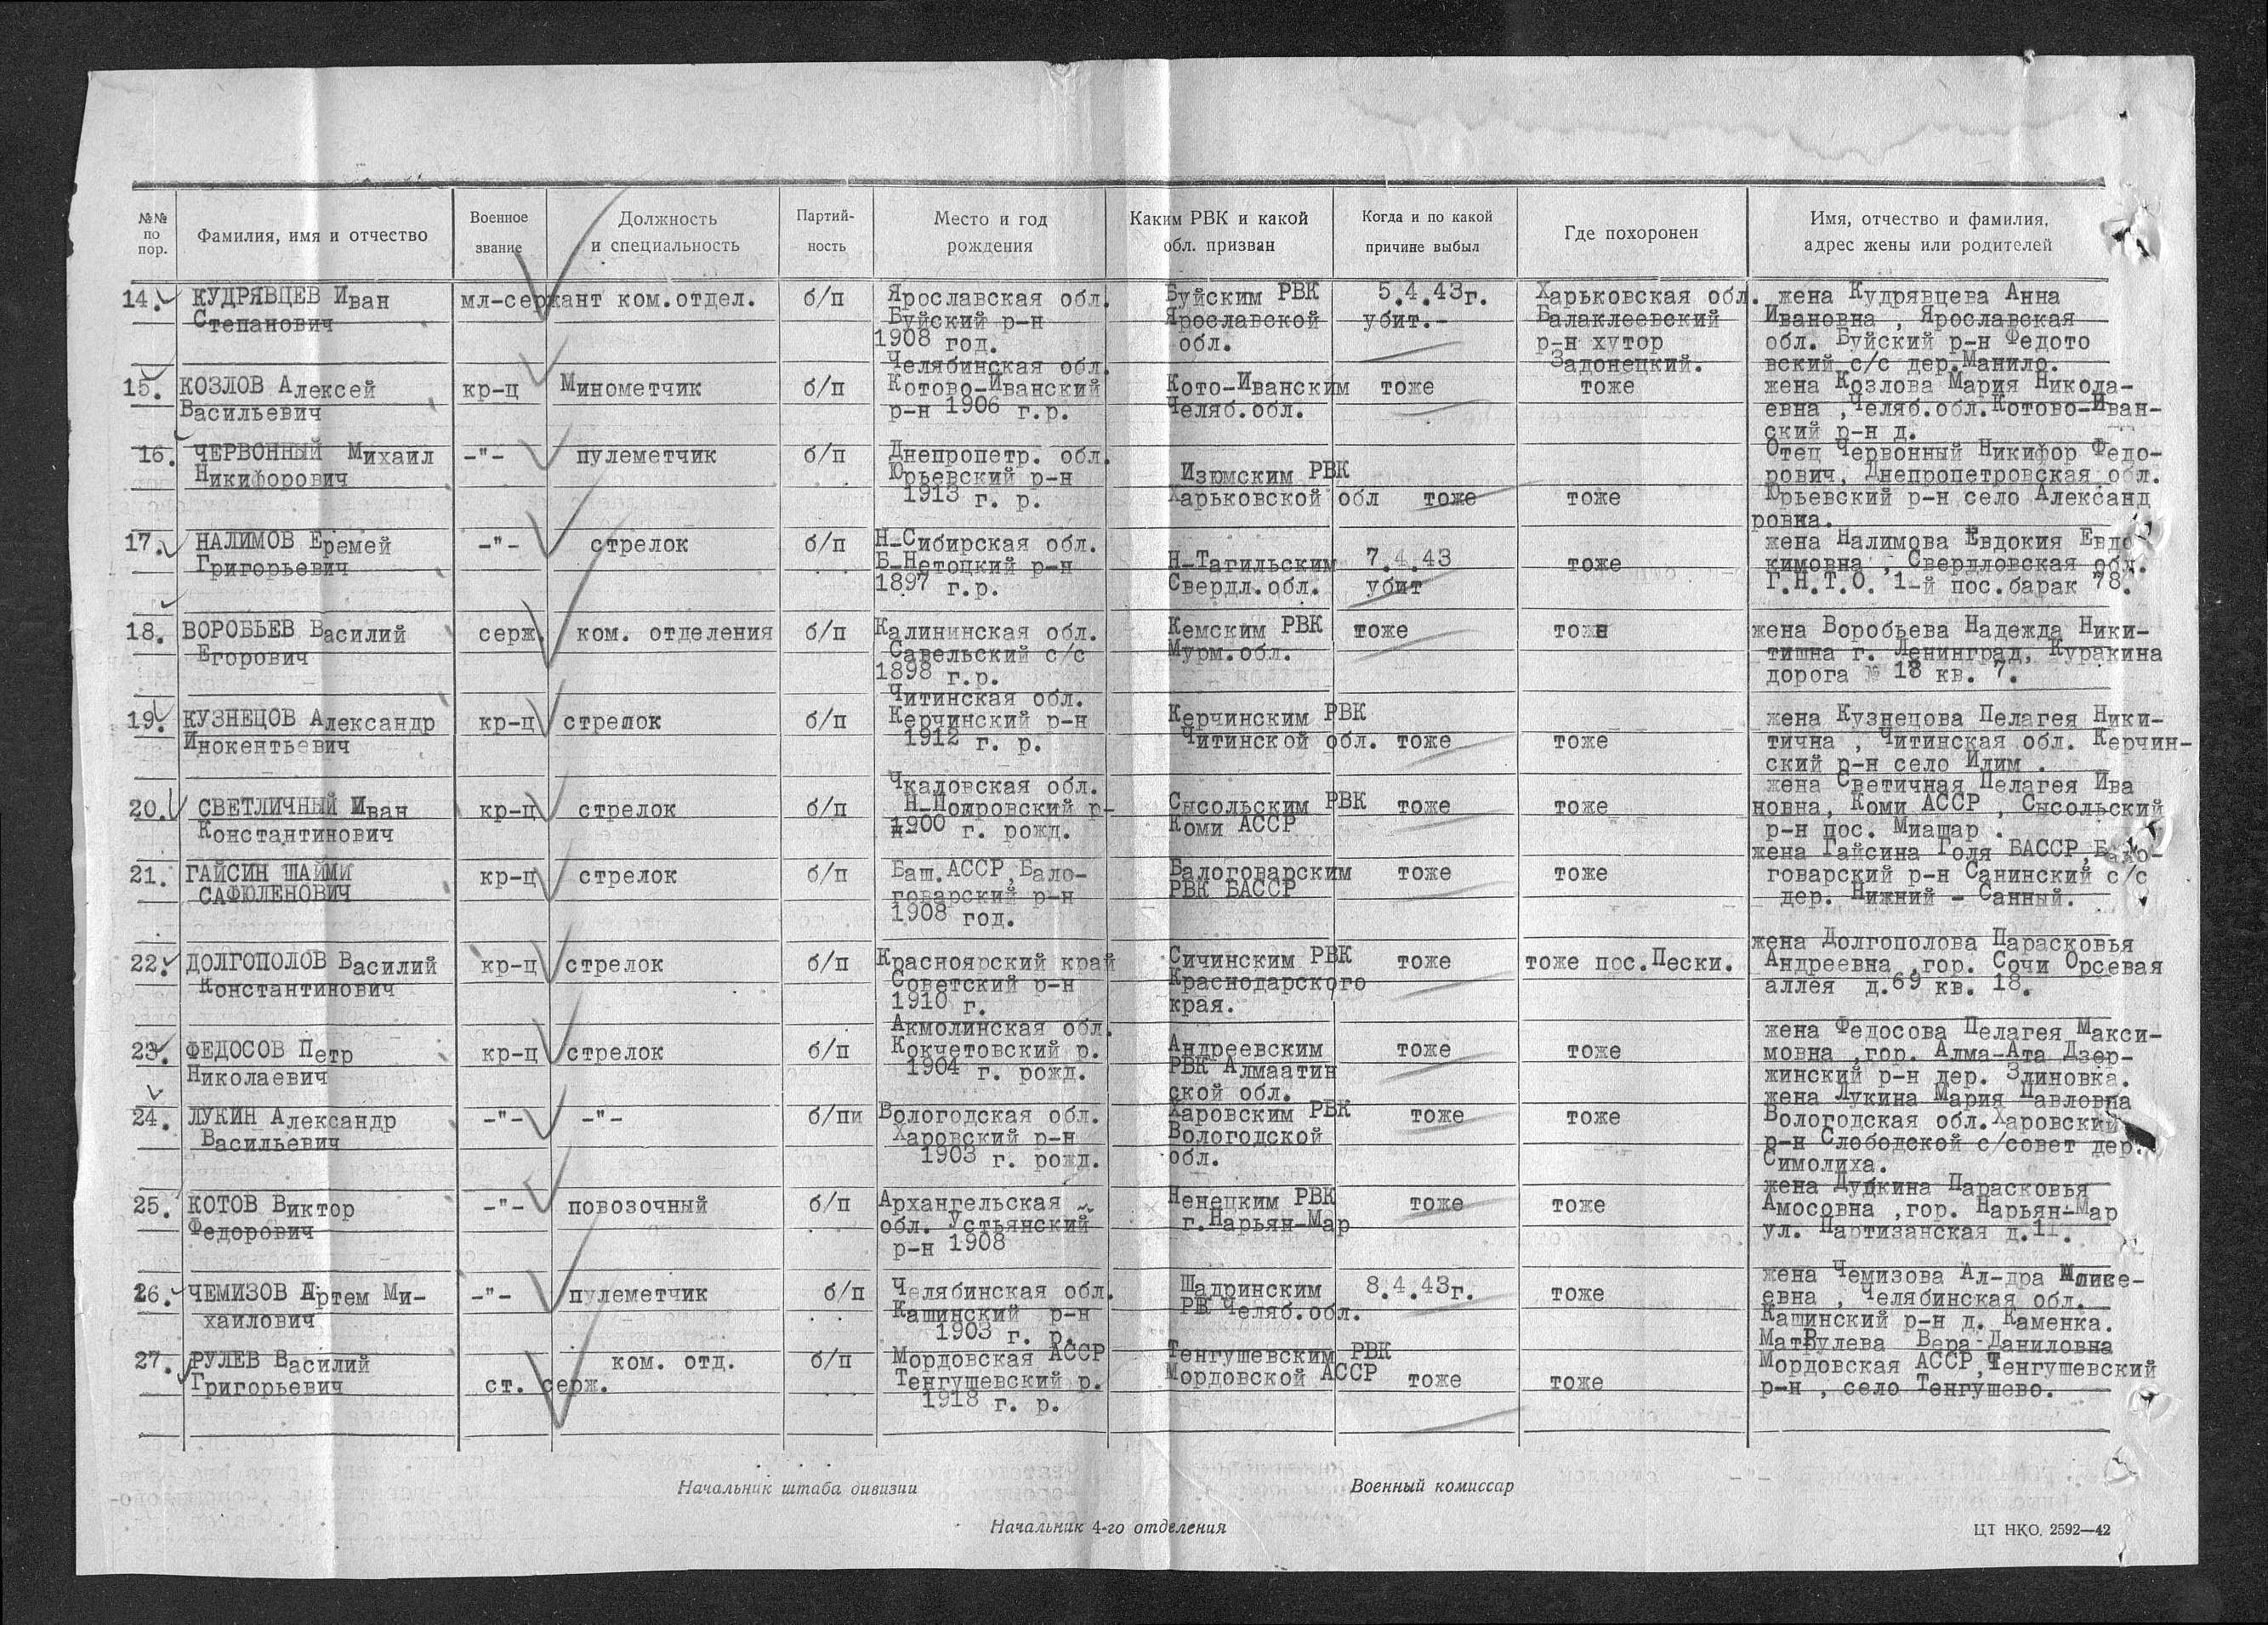 №№ по пор.
Фамилия, имя и отчество
Военное звание
Должность и специальность
Партий-ность
Место и год рождения
Каким РВК и какой обл. призван
Когда и по какой причине выбыл
Где похоронен
Имя, отчество и фамилия, адрес жены или родителей
14. КУДРЯВЦЕВ Иван мл-сержант ком.отдел. б/п Ярославская обл. Буйским РВК 5.4.43г. Харьковская обл. жена Кудрявцева Анна
Степанович Буйский р-н Ярославской убит.- Балаклеевский Ивановна , Ярославская
1908 год. обл. р-н хутор обл. Буйский р-н Федото
Челябинская обл. Задонецкий. вский с/с дер.Манило.
15. КОЗЛОВ Алексей кр-ц Минометчик б/п Котово-Иванский Кото-Иванским тоже тоже жена Козлова Мария Никола-
Васильевич р-н 1906 г.р. Челяб.обл. евна ,Челяб.обл.Котово-Иван-
ский р-н д.
16. ЧЕРВОННЫЙ Михаил -"- пулеметчик б/п Днепропетр. обл. Отец Червонный Никифор Федо-
Никифорович Юрьевский р-н Изюмским РВК рович, Днепропетровская обл.
1913 г. р. Харьковской обл тоже тоже Юрьевский р-н село Александ
ровка.
17. НАЛИМОВ Еремей -"- стрелок б/п Н-Сибирская обл. жена Налимова Евдокия Евдо
Григорьевич Б-Нетоцкий р-н Н-Тагильским 7.4.43 тоже кимовна , Свердловская обл.
1897 г.р. Свердл.обл. убит Г.Н.Т.О. 1-й пос.барак 78.
18. ВОРОБЬЕВ Василий серж. ком. отделения б/п Калининская обл. Кемским РВК тоже тожн жена Воробьева Надежда Ники-
Егорович Савельский с/с Мурм.обл. тишна г. Ленинград, Куракина
1898 г.р. дорога № 18 кв. 7.
Читинская обл.
19. КУЗНЕЦОВ Александр кр-ц стрелок б/п Керчинский р-н Керчинским РВК жена Кузнецова Пелагея Ники-
Инокентьевич 1912 г. р. Читинской обл. тоже тоже тична , Читинская обл. Керчин-
ский р-н село Илим .
Чкаловская обл. жена Светичная Пелагея Ива
20. СВЕТЛИЧНЫЙ Иван кр-ц стрелок б/п Сысольским РВК тоже тоже новна, Коми АССР , Сысольский
Константинович 1900 г. рожд. Коми АССР р-н пос. Миашар .
жена Гайсина Голя БАССР,
21. ГАЙСИН ШАЙМИ кр-ц стрелок б/п Баш.АССР,Бало- Балоговарским тоже тоже говарский р-н Санинский с/с
САФЮЛЕНОВИЧ говарский р-н РВК БАССР дер. Нижний - Санный.
1908 год.
жена Долгополова Парасковья
22. ДОЛГОПОЛОВ Василий кр-ц стрелок б/п Красноярский край Сичинским РВК тоже тоже пос.Пески. Андреевна ,гор. Сочи Орсевая
Константинович Советский р-н Краснодарского аллея д.69 кв. 18.
1910 г. края.
Акмолинская обл. жена Федосова Пелагея Макси-
23. ФЕДОСОВ Петр кр-ц стрелок б/п Кокчетовский р. Андреевским тоже тоже мовна ,гор. Алма-Ата Дзер-
Николаевич 1904 г. рожд. РВК Алмаатин жинский р-н дер. Злиновка.
ской обл. жена Лукина Мария Павловна
24. ЛУКИН Александр -"- -"- б/пи Вологодская обл. Харовским РВК тоже тоже Вологодская обл.Харовский
Васильевич Харовский р-н Вологодской р-н Слободской с/совет дер.
1903 г. рожд. обл. Симолиха.
жена Дудкина Парасковья
25. КОТОВ Виктор -"- повозочный б/п Архангельская Ненецким РВК тоже тоже Амосовна ,гор. Нарьян-Мар
Федорович обл. Устьянский г.Нарьян-Мар ул. Партизанская д.11.
р-н 1908
жена Чемизова Ал-дра
26. ЧЕМИЗОВ Артем Ми- -"- пулеметчик б/п Челябинская обл. Шадринским 8.4.43г. тоже евна , Челябинская обл.
хаилович Кашинский р-н РВК Челяб.обл. Кашинский р-н д. Каменка.
1903 г. р. Мат Рулева Вера Даниловна
27. РУЛЕВ Василий ком. отд. б/п Мордовская АССР Тенгушевским РВК Мордовская АССР,Тенгушевский
Григорьевич ст. серж. Тенгушевский р. Мордовской АССР тоже тоже р-н , село Тенгушево.
1918 г. р.
Начальник штаба дивизии
Военный комиссар
Начальник 4-го отделения
ЦТ НКО. 2592—42